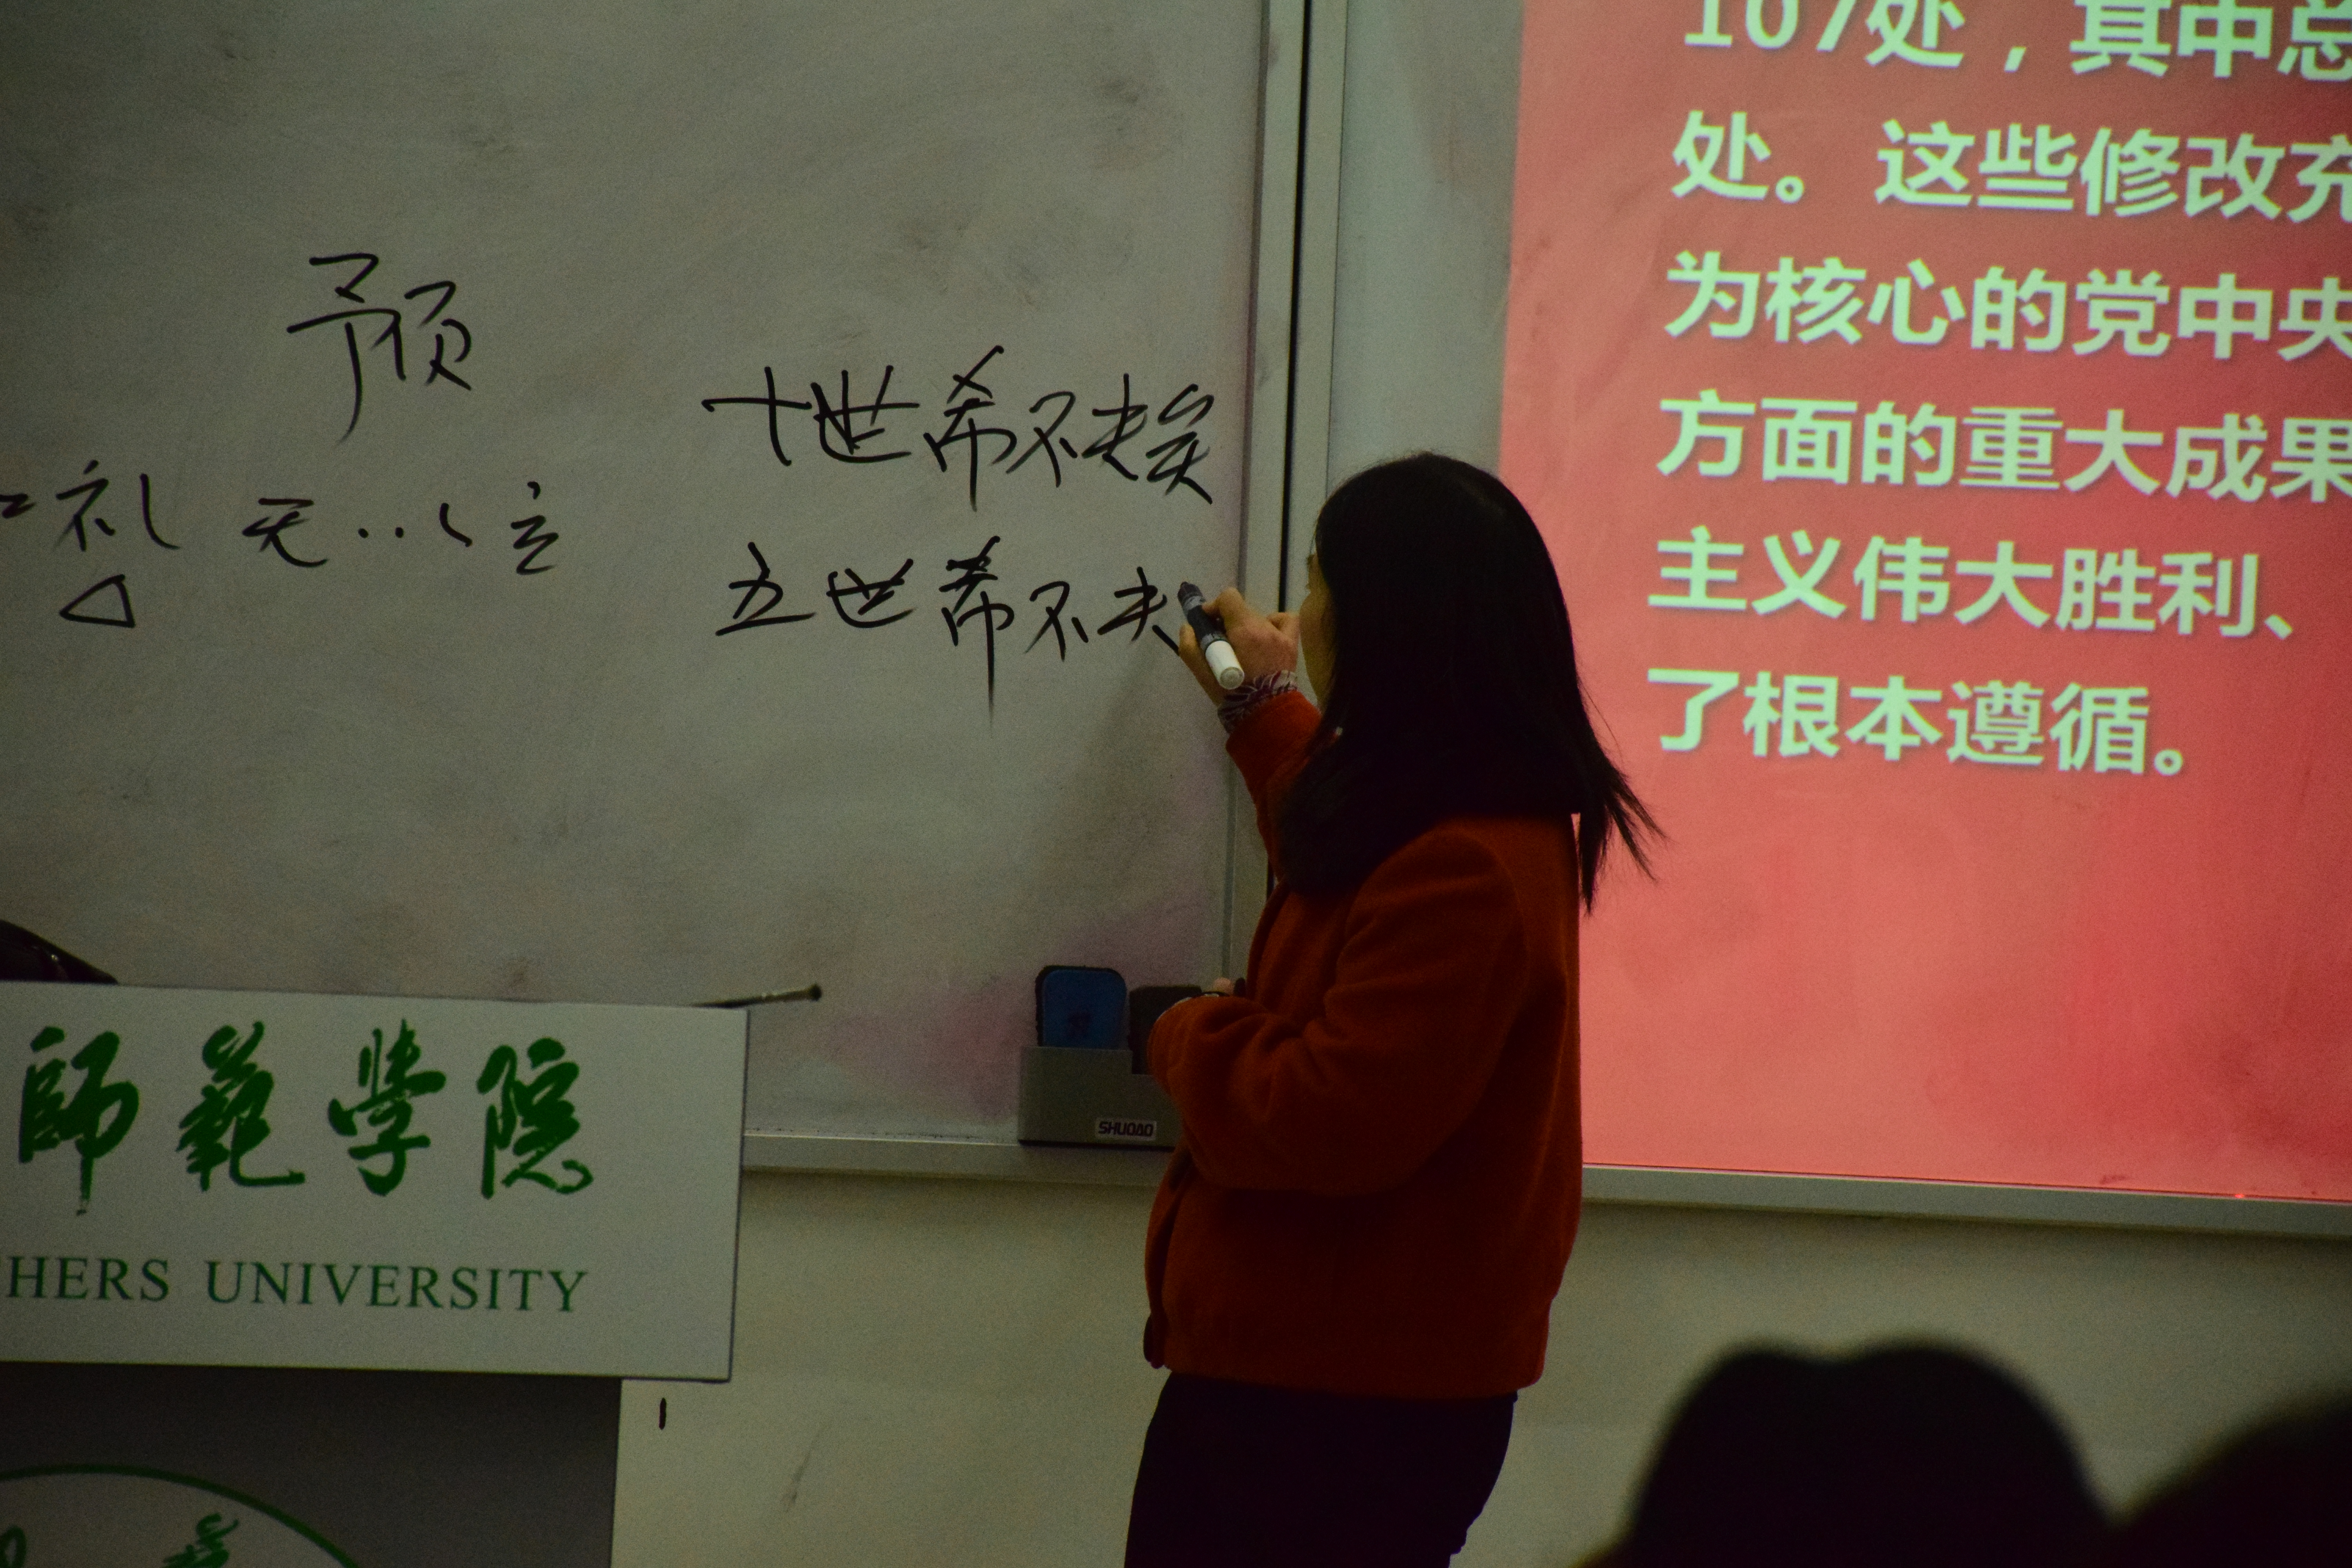 预
礼 无..以立
十世希不失矣
五世希不失
107处，其中总
处。这些修改充
为核心的党中央
方面的重大成果
主义伟大胜利、
了根本遵循。
SHUOAO
師範學院
HERS UNIVERSITY